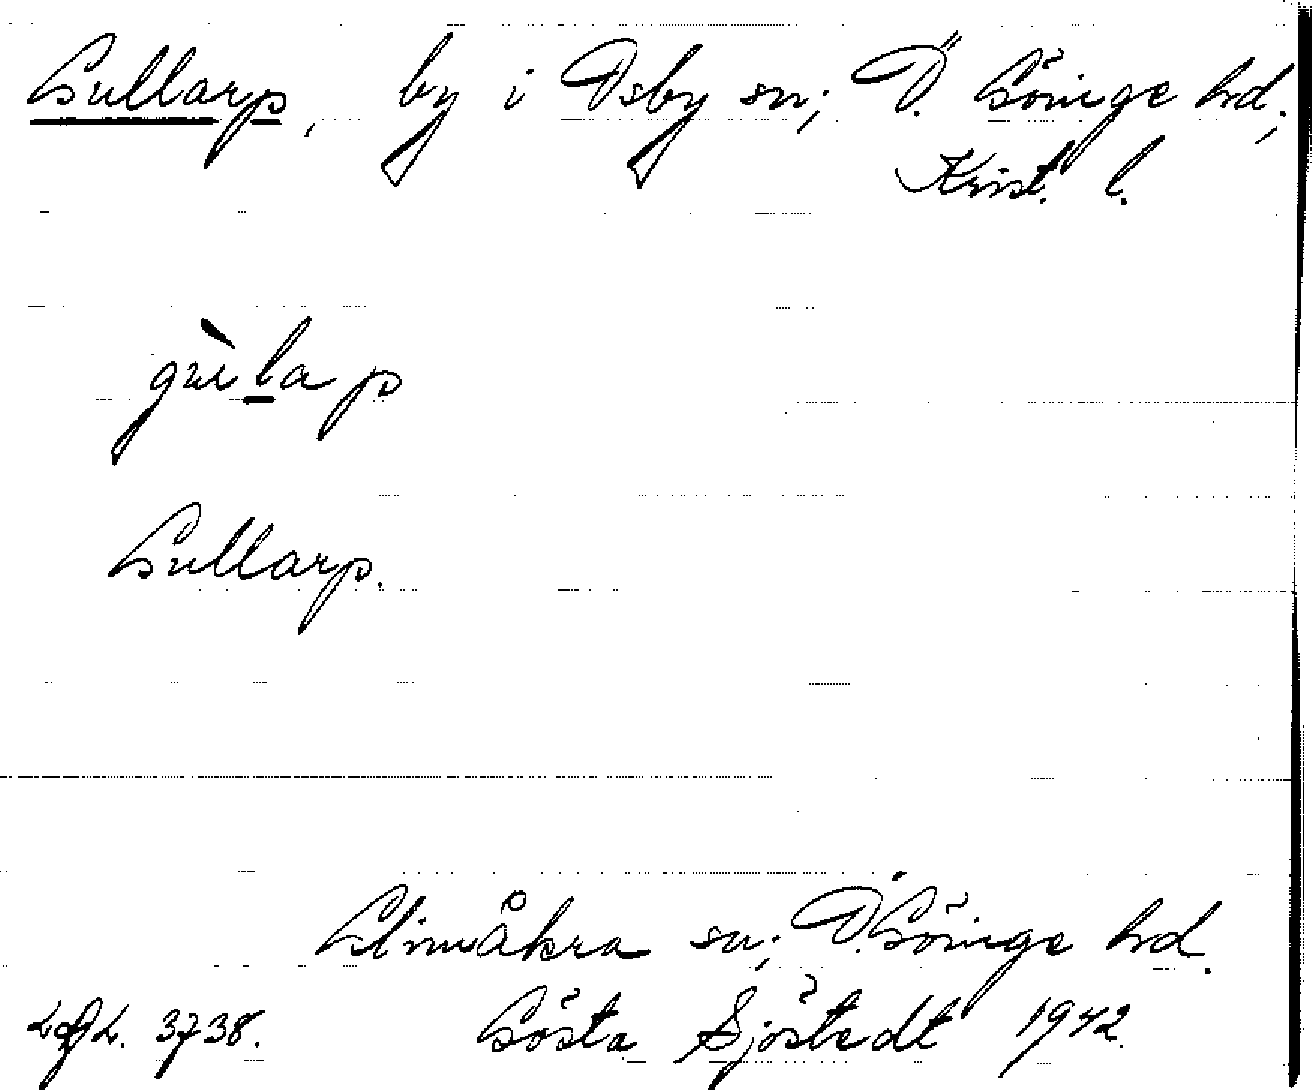 Gullarp, by i Osby sn; Ö. Göinge hd;
Krist. l.
gùlap
Gullarp.
Glimåkra sn; Ö. Göinge hd.
3738. Gösta Sjöstedt 1942.